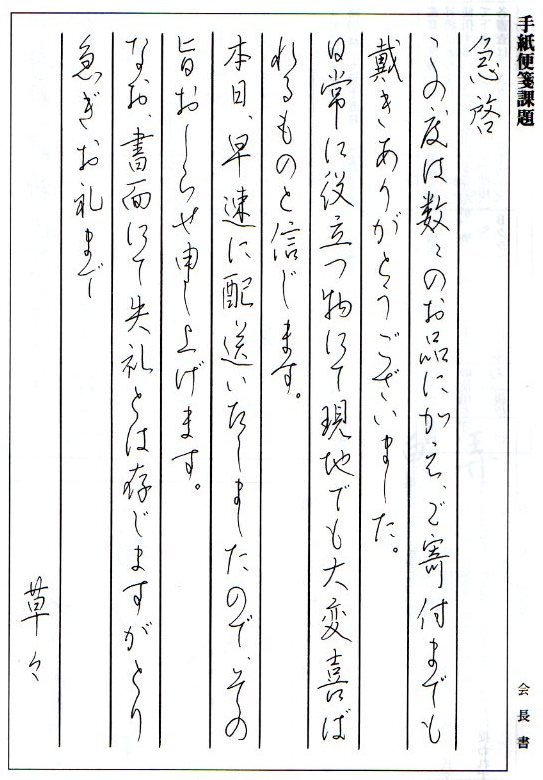 手紙便箋課題
会長書
急啓
この度は数々のお品にかえ、ご寄付までも
戴きありがとうございました。
日常に役立つ物にて現地でも大変喜ば
れるものと信じます。
本日、早速に配送いたしましたので、その
旨おしらせ申し上げます。
なお、書面にて失礼とは存じますがとり
急ぎお礼まで
草々